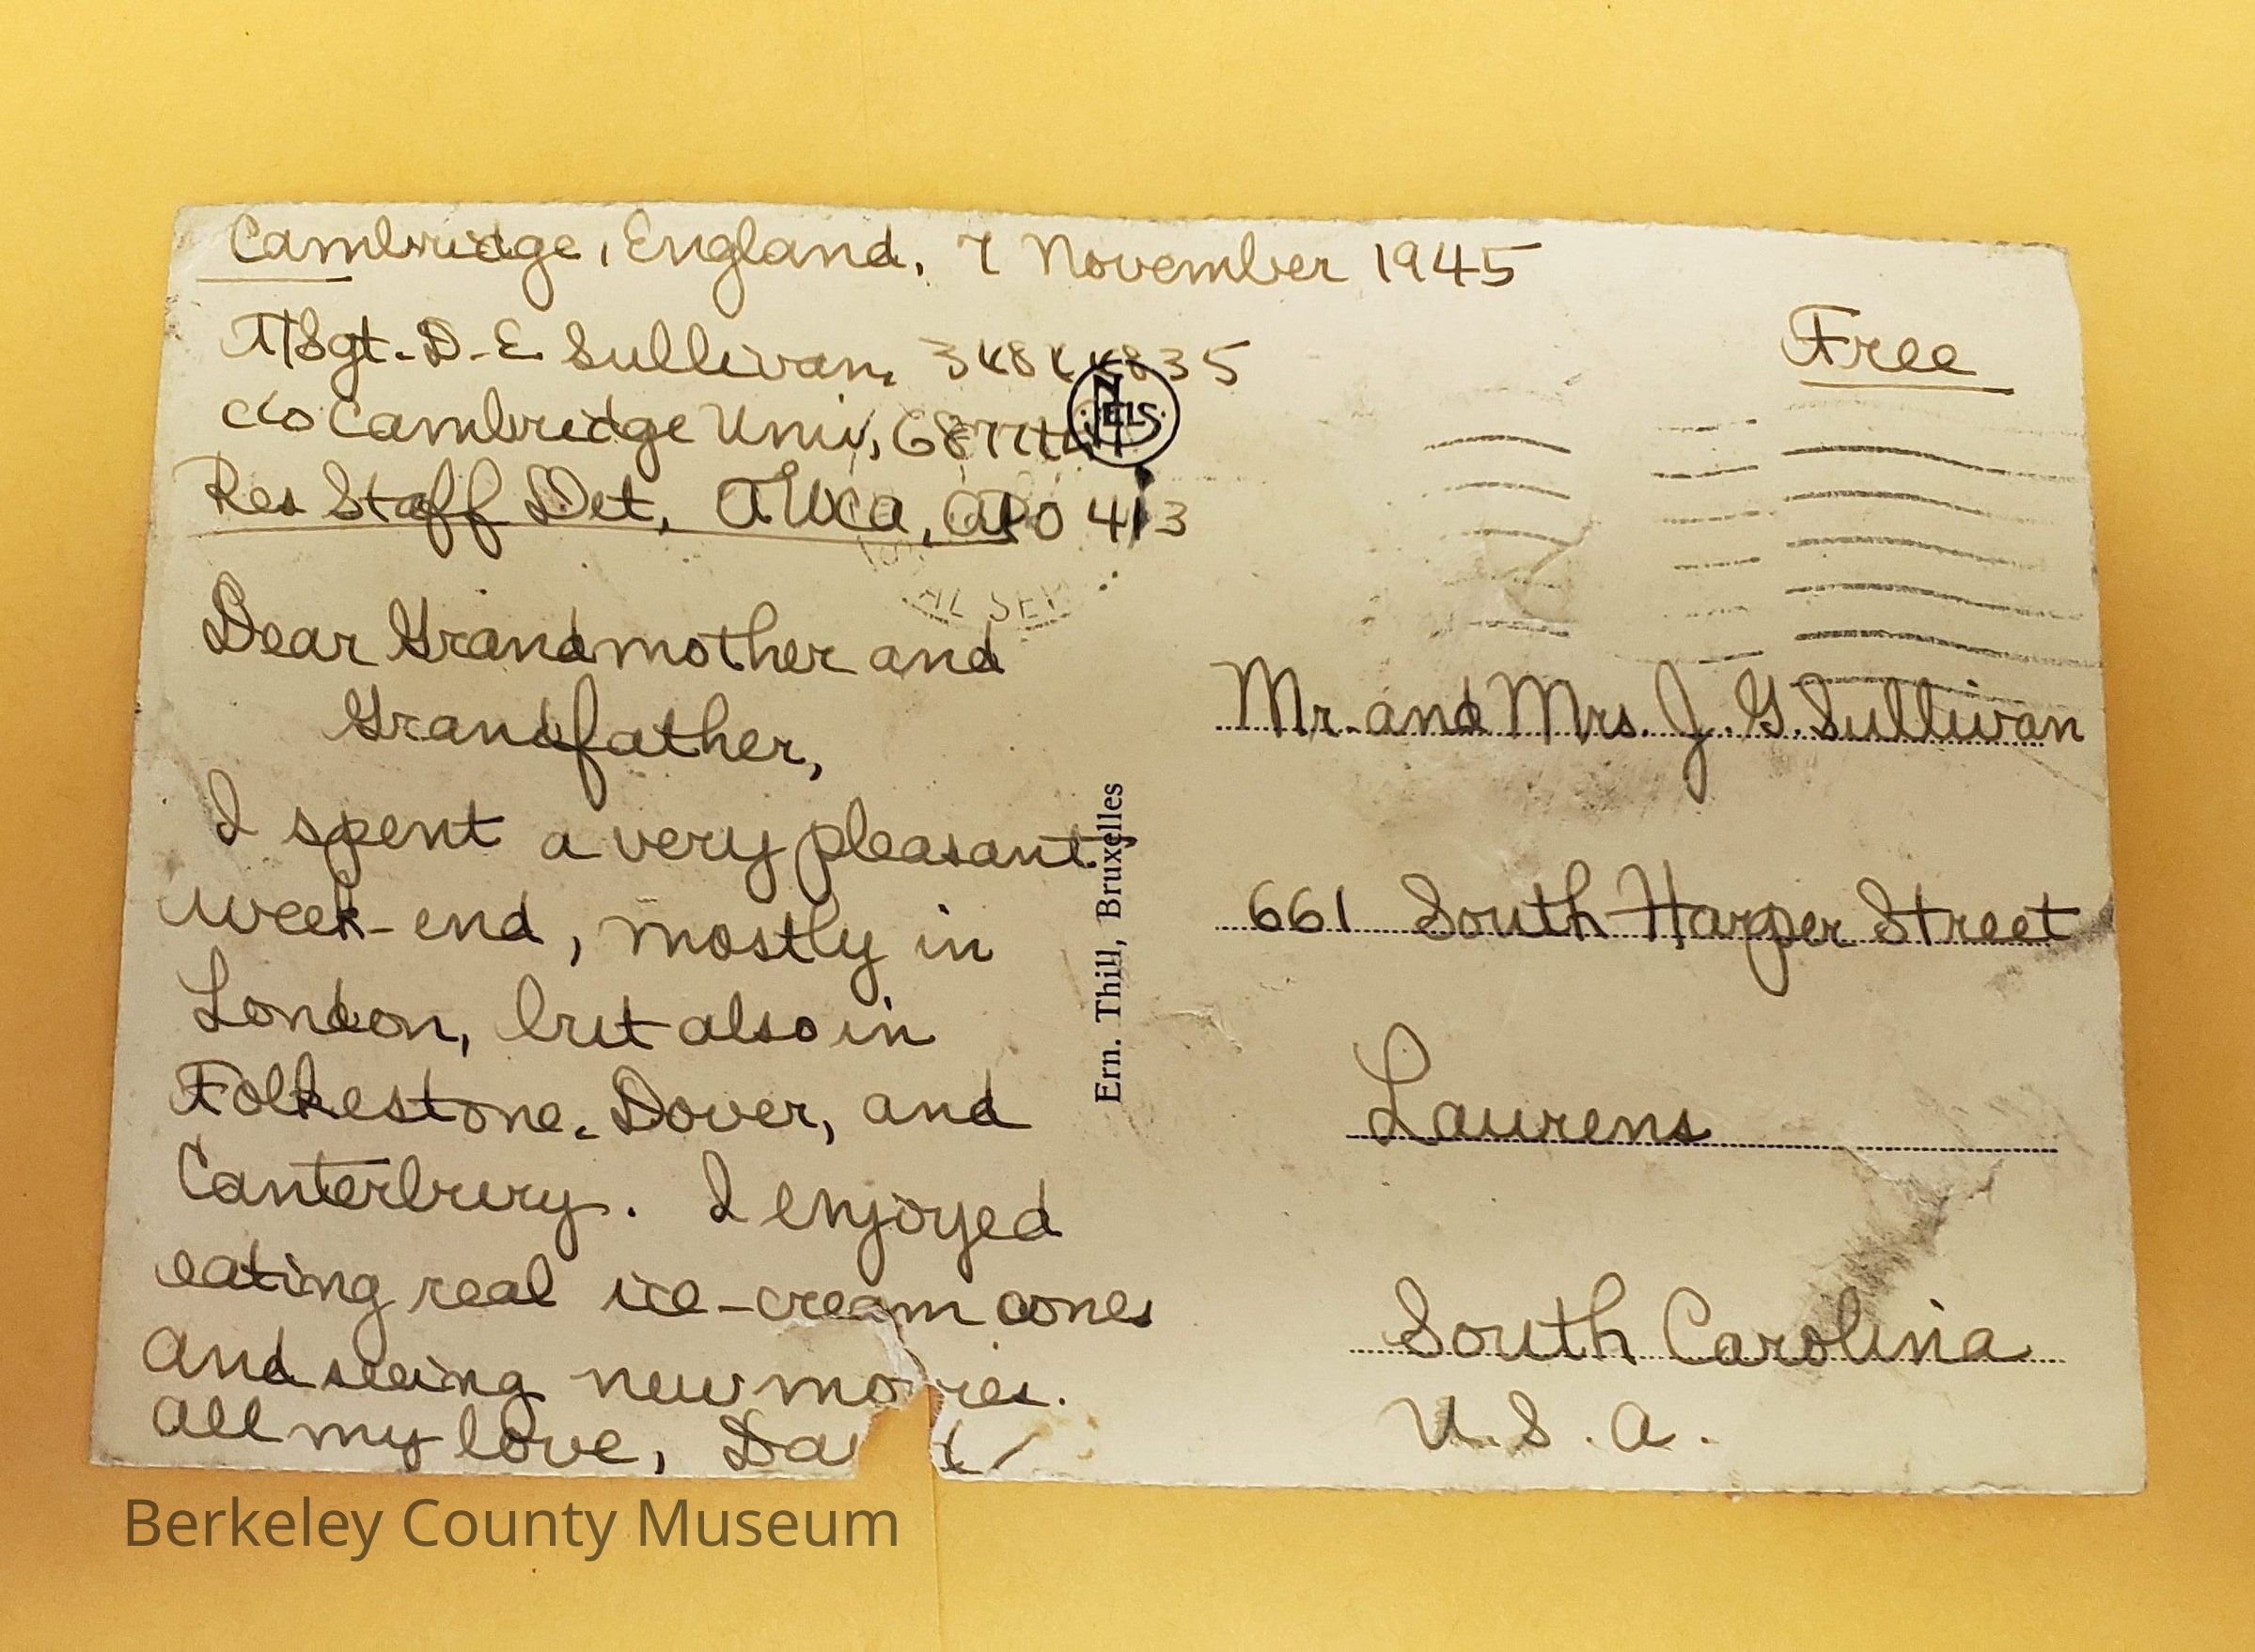 Cambridge, England, 7 November 1945
T/Sgt. D. E. Sullivan,
c/o Cambridge Univ,
Res Staff Det, APO 413
Free
NELS
Dear Grandmother and
Grandfather,
I spent a very pleasant
week-end, mostly in
London, but also in
Folkestone, Dover, and
Canterbury. I enjoyed
eating real ice-cream cones
and seeing new
All my love,
Ern. Thill, Bruxelles
Mr. and Mrs. J. G. Sullivan
661 South Harper Street
Laurens
South Carolina
U. S. A.
Berkeley County Museum